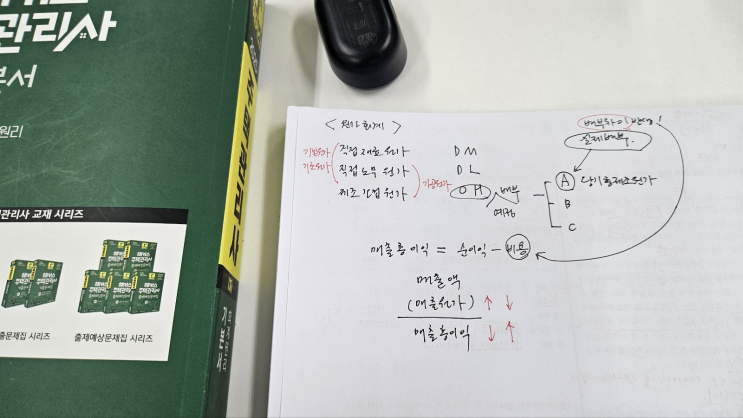 관리사
본서
원리
관리사 교재 시리즈
출문제집 시리즈
출제예상문제집 시리즈
기본서
< 원가 흐름계 >
기본원가
기초원가
직접 재료 원가 DM
직접 노무 원가 DL
제조 간접 원가 OH
가공원가
배부
예정
배부차이 발생!
실제배부.
A 당기총제조원가
B
C
매출총이익 = 순이익 - 비용
매출액
(매출원가) ↑ ↓
매출총이익 ↓ ↑